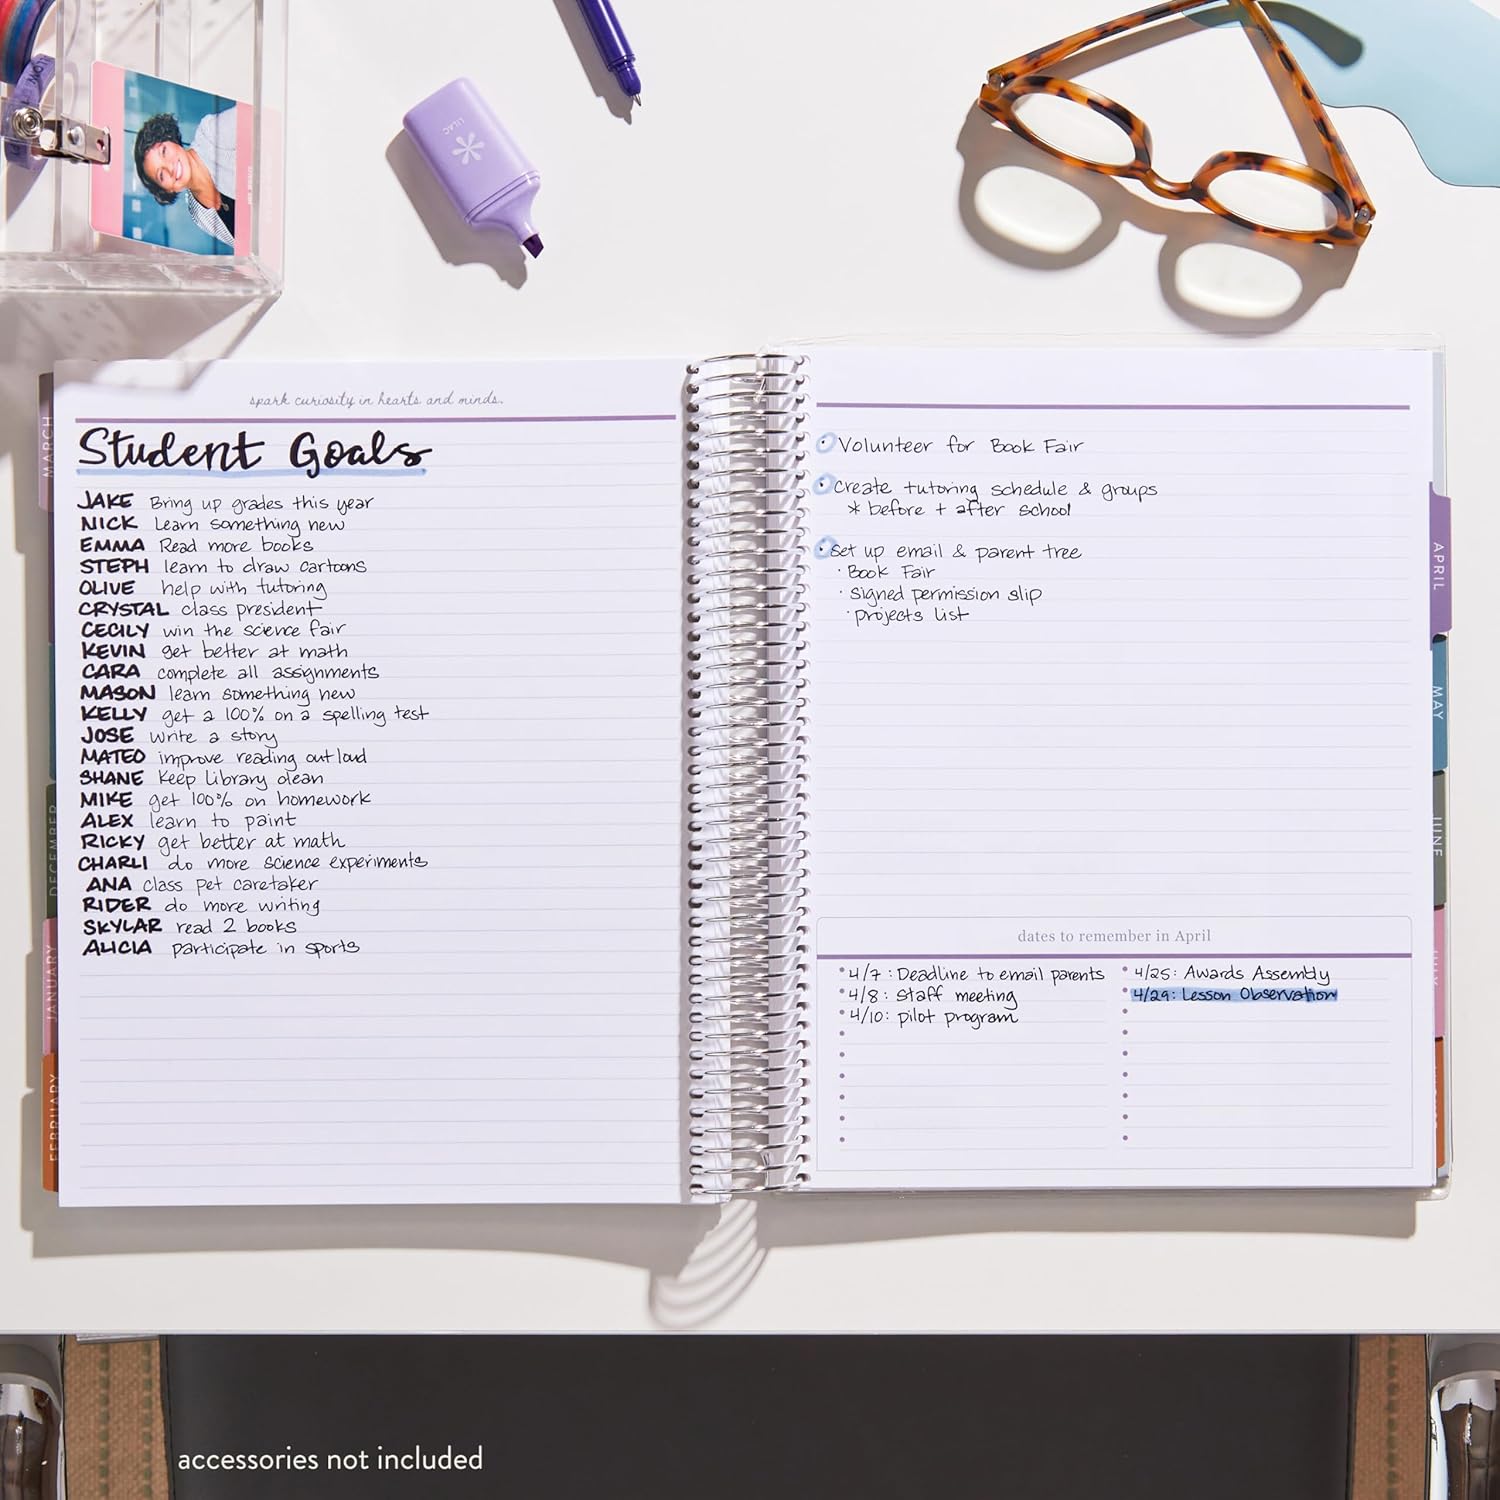 LILAC
spark curiosity in hearts and minds.
Student Goals
JAKE Bring up grades this year
NICK Learn something new
EMMA Read more books
STEPH learn to draw cartoons
OLIVE help with tutoring
CRYSTAL class president
CECILY win the science fair
KEVIN get better at math
CARA complete all assignments
MASON learn something new
KELLY get a 100% on a spelling test
JOSE write a story
MATEO improve reading out loud
SHANE Keep Library clean
MIKE get 100% on homework
ALEX learn to paint
RICKY get better at math
CHARLI do more science experiments
ANA class pet caretaker
RIDER do more writing
SKYLAR read 2 books
ALICIA participate in sports
MARCH
DECEMBER
JANUARY
FEBRUARY
• Volunteer for Book Fair
• Create tutoring schedule & groups
* before + after school
• Set up email & parent tree
· Book Fair
· signed permission slip
· projects list
dates to remember in April
• 4/7: Deadline to email parents
• 4/8: Staff meeting
• 4/10: pilot program
• 4/25: Awards Assembly
• 4/29: Lesson Observation
APRIL
MAY
JUNE
JULY
accessories not included